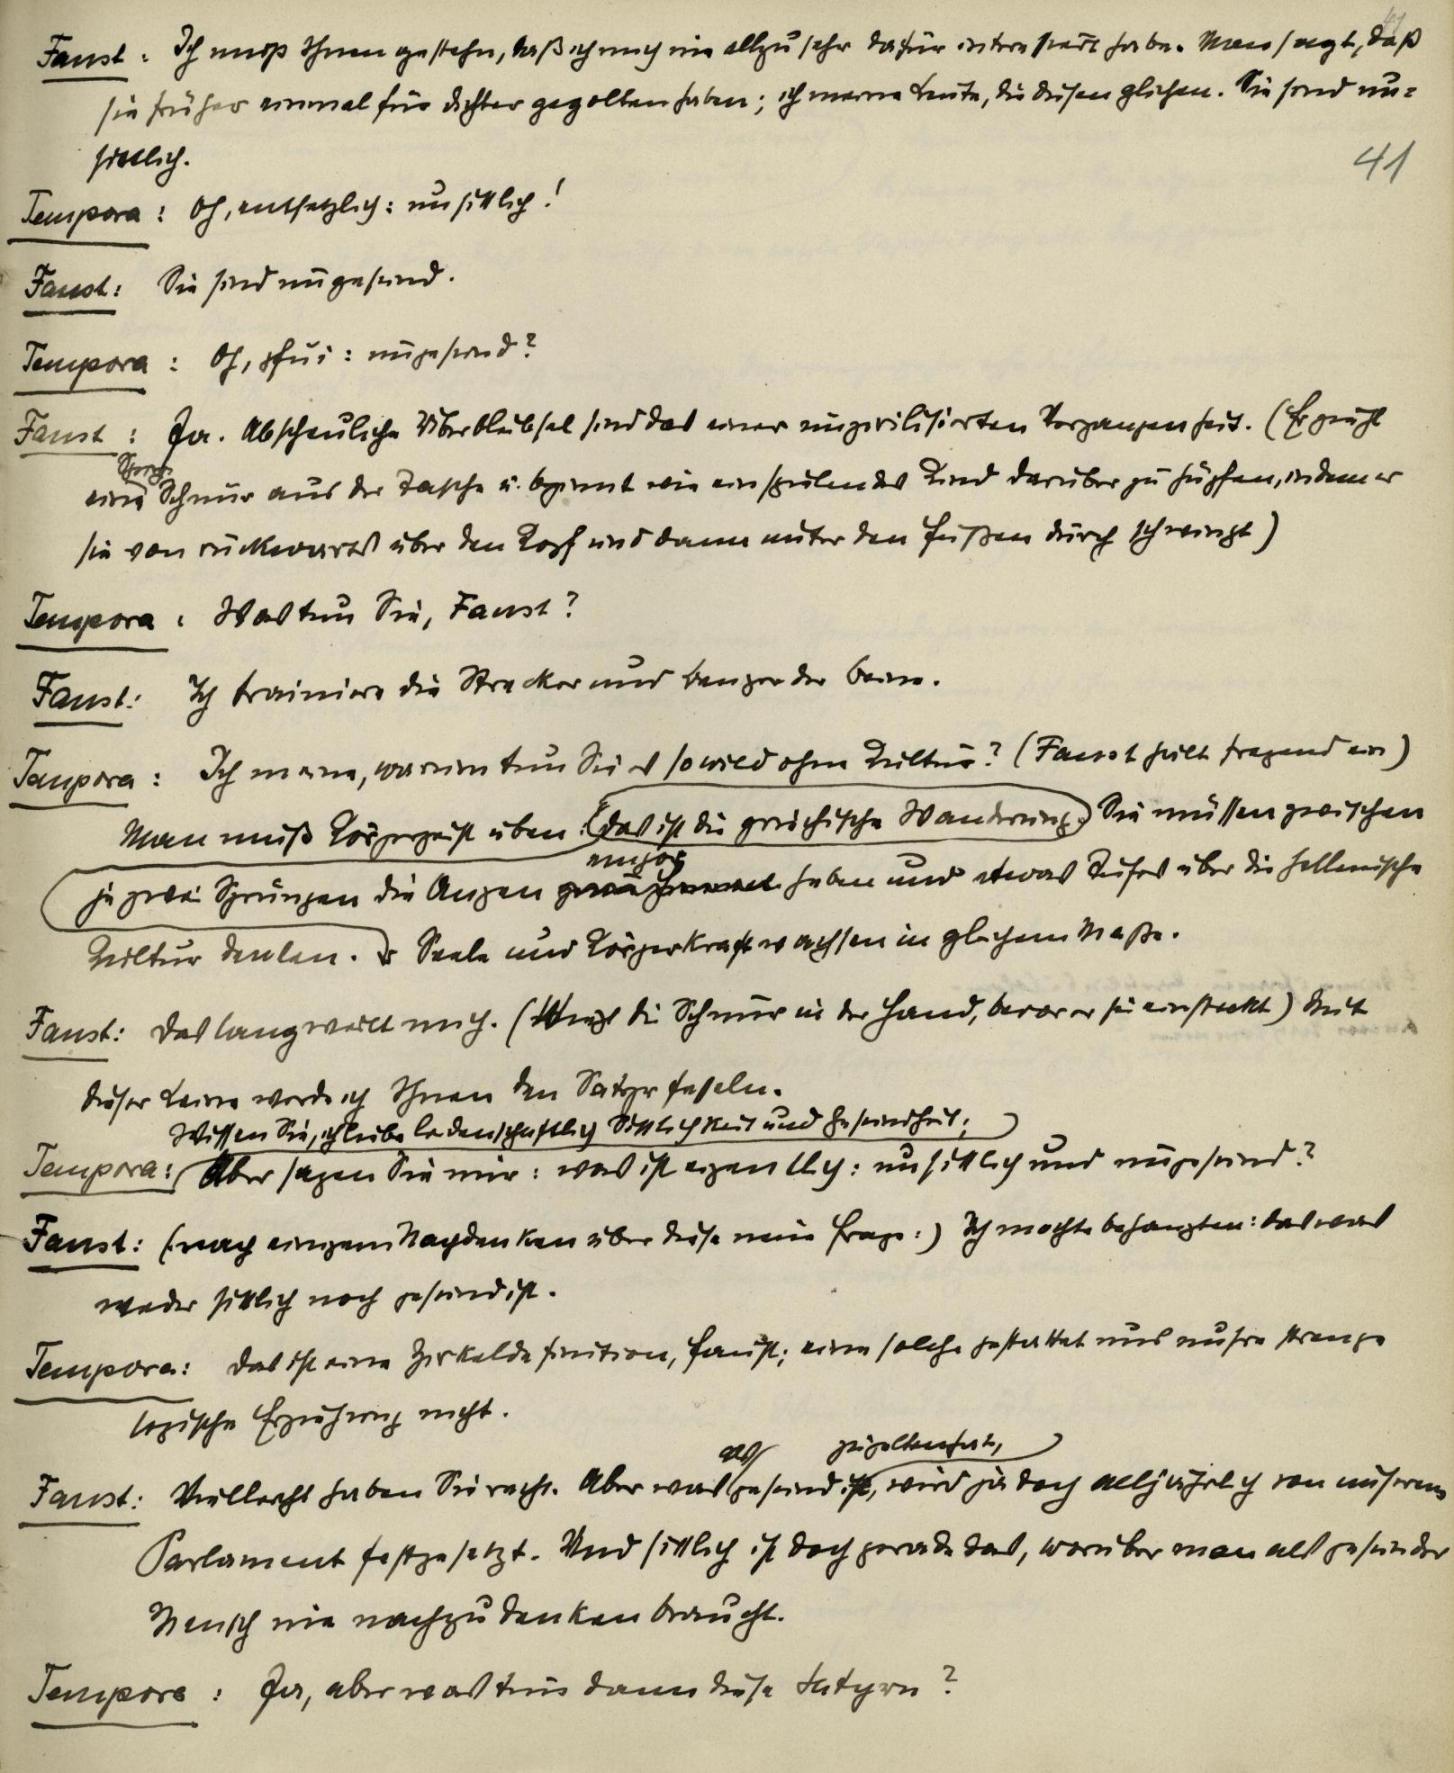 Faust: Ich muß Ihnen gestehn, daß ich mich nie allzusehr dafür interessiert habe. Man sagt, daß
sie früher einmal für Dichter gegolten haben; ich meine Leute, die diesen glichen. Sie sind un=
sittlich.
41
Tempora: Oh, entsetzlich: unsittlich!
Faust: Sie sind ungesund.
Tempora: Oh, pfui: ungesund?
Faust: Ja. Abscheuliche Überbleibsel sind das einer unzivilisierten Vergangenheit. (Er zieht
eine Schnur aus der Tasche u. beginnt wie ein spielendes Kind darüber zu hüpfen, indem er
sie von rückwärts über den Kopf und dann unter den Füßen durch schwingt)
Tempora: Was tun Sie, Faust?
Faust: Ich trainiere die Strecker und Beuger der Beine.
Tempora: Ich meine, warum tun Sie es so wild ohne Kultur? (Faust hält fragend ein)
Man muß Körpergeist üben. (Das ist die griechische Wanderung.) Sie müssen zwischen
je zwei Sprüngen die Augen empor haben und etwas Tiefes über die hellenische
Kultur denken. Seele und Körperkraft wachsen in gleichem Maße.
Faust: Das langweilt mich. (Wiegt die Schnur in der Hand, bevor er sie einsteckt) Mit
dieser Leine werde ich Ihnen den Satyr fesseln.
Wissen Sie, ich liebe leidenschaftlich Sittlichkeit und Gesundheit;
Tempora: Aber sagen Sie mir: was ist eigentlich: unsittlich und ungesund?
Faust: (nach einigem Nachdenken über diese neue Frage:) Ich möchte behaupten: das was
weder sittlich noch gesund ist.
Tempora: Das ist eine Zirkeldefinition, Faust; eine solche gestattet uns unsre strenge
logische Erziehung nicht.
als zu gelten hat,
Faust: Vielleicht haben Sie recht. Aber was gesund ist, wird ja doch alljährlich von unserem
Parlament festgesetzt. Und sittlich ist doch gerade das, worüber man als gesunder
Mensch nie nachzudenken braucht.
Tempora: Ja, aber was tun dann diese Satyrn?